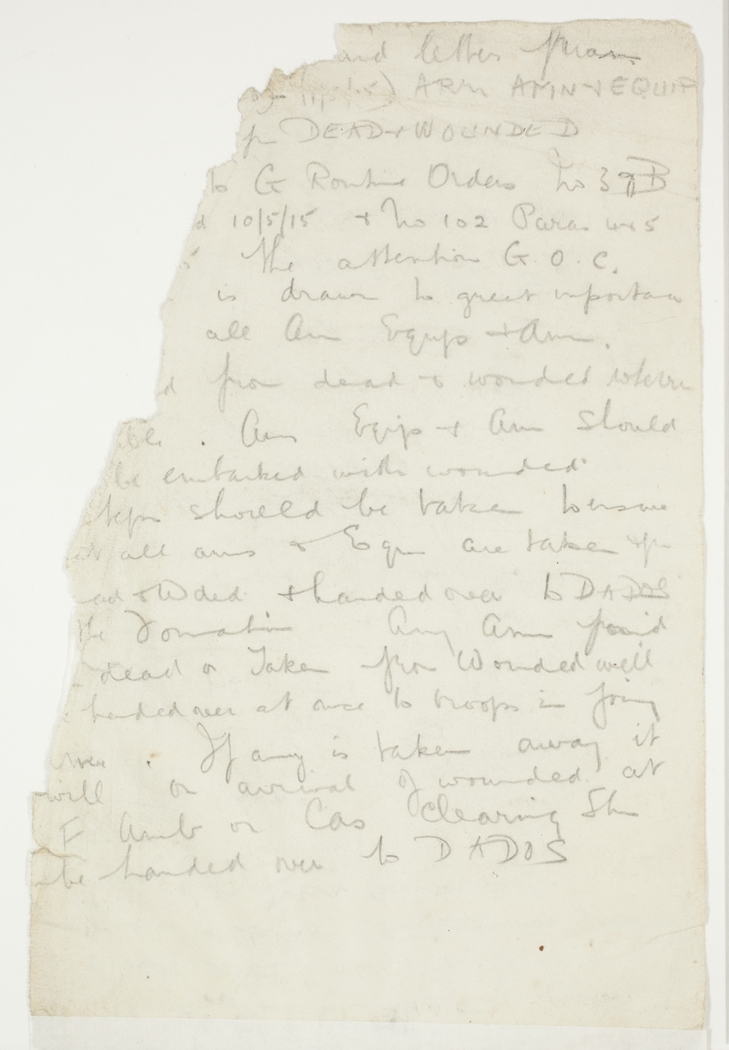 and letter from
ARM AMN + EQUIP
fm DEAD + WOUNDED
to G Routine Orders No 37B
d 10/5/15 + No 102 Para 4+5
the attention G.O.C.
is drawn to great importan
all Am Equips + Am.
d from dead + wounded where
ble. Am Equip + Am should
be embarked with wounded
teps should be taken to ensure
at all arms + Equ are taken fm
ead + Wded + handed over to DADOS
the Formation Any Am found
dead or Taken from Wounded will
handed over at once to troops in firing
If any is taken away it
will on arrival of wounded at
F Amb or Cas Clearing Stn
be handed over to DADOS